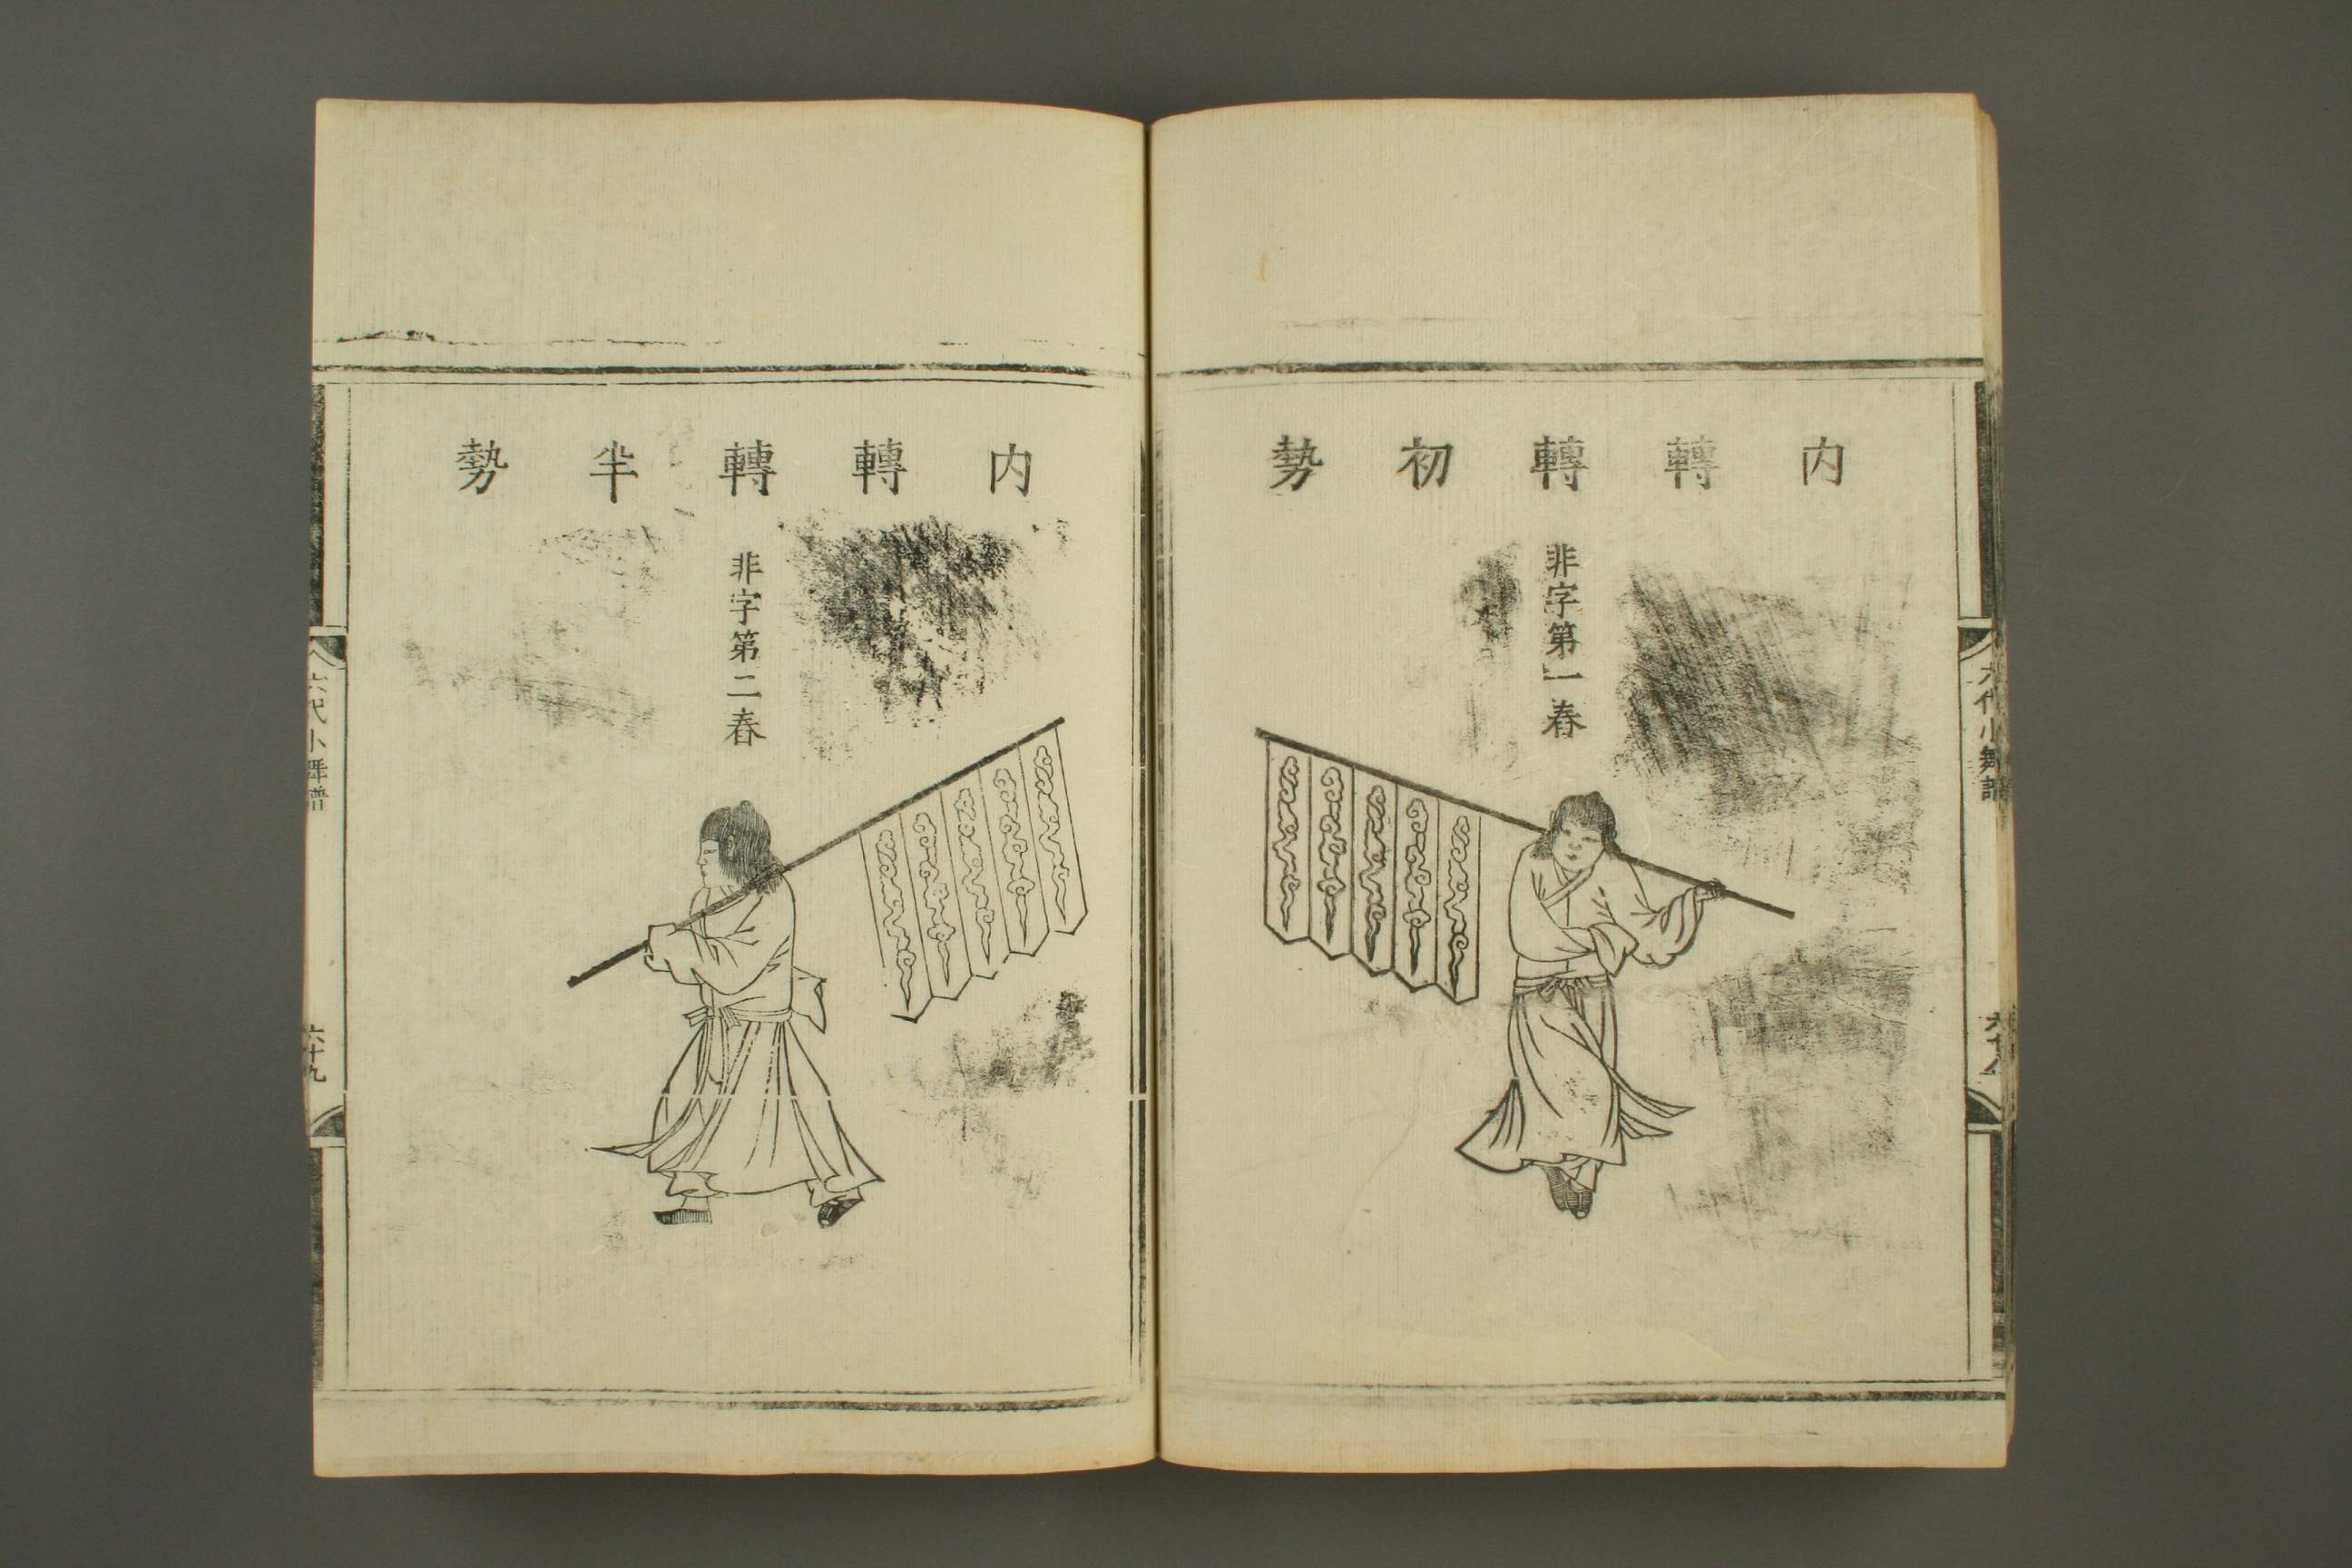 内轉轉初勢
非字第一春
六代小舞譜
六十八
内轉轉半勢
非字第二春
六代小舞譜
六十九